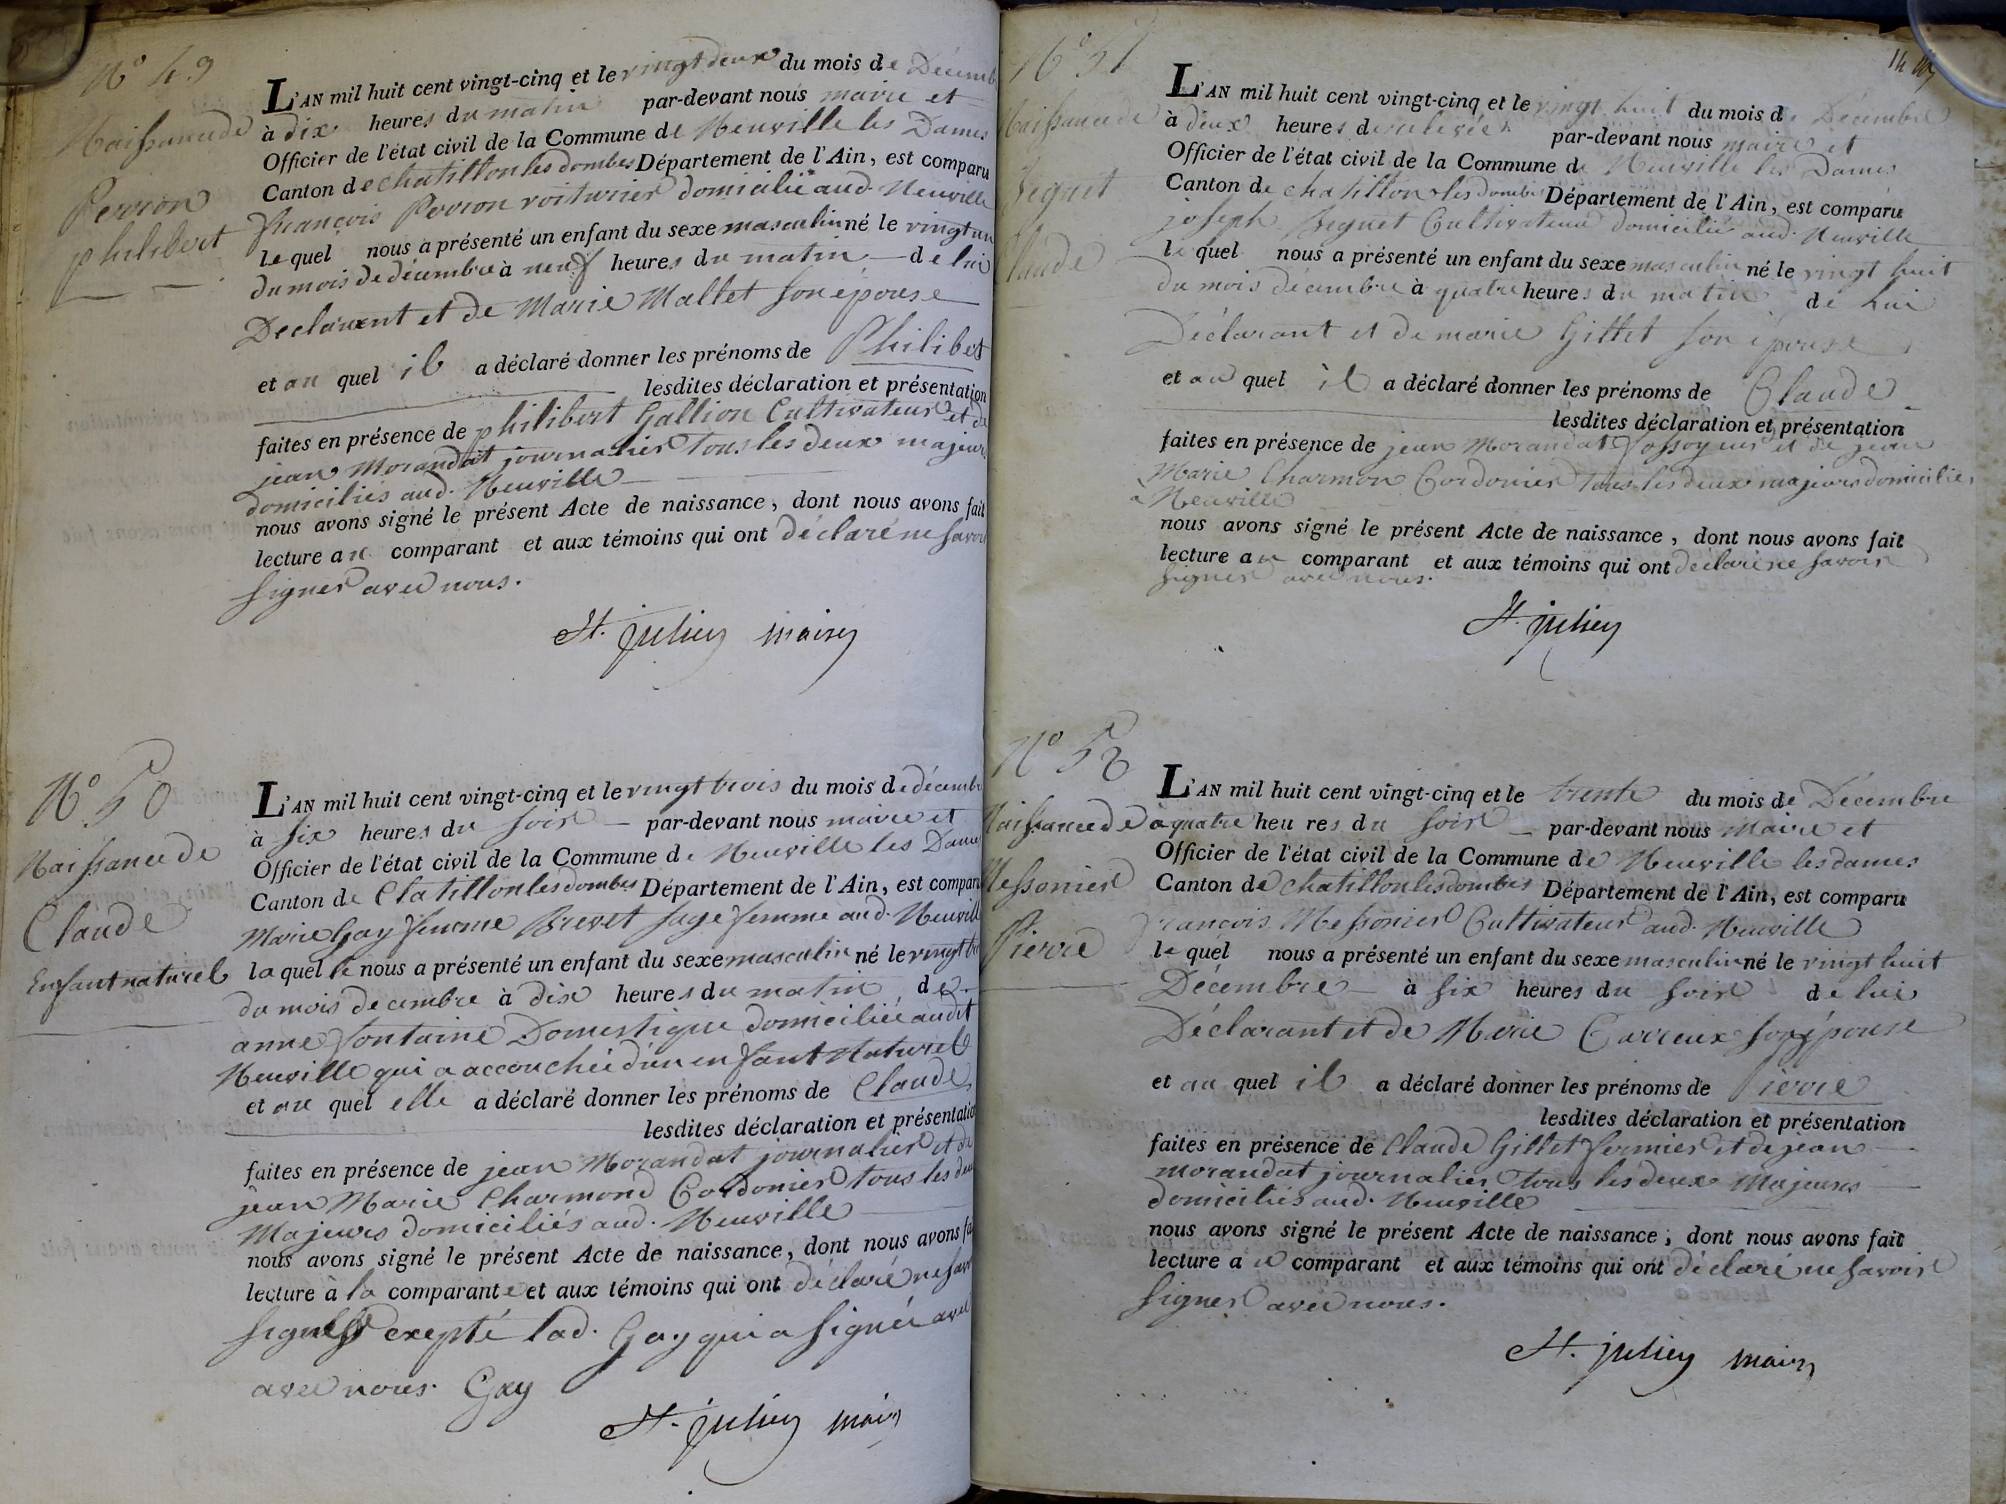 N° 49
Naissance de
Perron
philibert
L'AN mil huit cent vingt-cinq et le vingt deux du mois de Décemb
à dix heures du matin par-devant nous maire et
Officier de l'état civil de la Commune de Neuville les Dames
Canton de chatillon les dombes Département de l'Ain, est comparu
françois Perron voiturier domicilié aud. Neuville
le quel nous a présenté un enfant du sexe masculin né le vingt un
du mois de décembre à neuf heures du matin de lui
Declarent et de Marie Mallet son épouse
et au quel il a déclaré donner les prénoms de Philibert
lesdites déclaration et présentation
faites en présence de philibert Gallion Cultivateur et de
jean Morandat journalier tous les deux majeurs
domiciliés aud. Neuville
nous avons signé le présent Acte de naissance, dont nous avons fait
lecture au comparant et aux témoins qui ont déclaré ne savoir
signer avec nous.
St. julien maire
N° 50
Naissance de
Claude
Enfant naturel
L'AN mil huit cent vingt-cinq et le vingt trois du mois de décembre
à six heures du soir par-devant nous maire et
Officier de l'état civil de la Commune de Neuville les Dames
Canton de Clatillon les dombes Département de l'Ain, est comparu
Marie Gay femme Brevet sage femme aud. Neuville
la quelle nous a présenté un enfant du sexe masculin né le vingt tro
du mois decembre à dix heures du matin de
anne fontaine Domestique domiciliée audit
Neuville qui a accouchée d'un enfant Naturel
et au quel elle a déclaré donner les prénoms de Claude
lesdites déclaration et présentation
faites en présence de jean Morandat journalier et de
jean Marie Charmond Cordonier tous les deux
Majeurs domiciliés aud. Neuville
nous avons signé le présent Acte de naissance, dont nous avons fa
lecture à la comparante et aux témoins qui ont déclaré ne savoir
signer exepté lad. Gay qui a signée avec
avec nous. Gay
St. julien maire
14
N° 51
Naissance de
Claude
L'AN mil huit cent vingt-cinq et le vingt huit du mois de Décembre
à deux heures de relevée par-devant nous maire et
Officier de l'état civil de la Commune de Neuville les Dames
Canton de chatillon les dombes Département de l'Ain, est comparu
joseph Cultivateur domicilié aud. Neuville
le quel nous a présenté un enfant du sexe masculin né le vingt huit
du mois décembre à quatre heures du matin de lui
Déclarant et de marie Gillet son épouse
et au quel il a déclaré donner les prénoms de Claude
lesdites déclaration et présentation
faites en présence de jean Morandat fossoyeur et de jean
Marie Charmon Cordonier tous les deux majeurs domiciliés
à Neuville
nous avons signé le présent Acte de naissance, dont nous avons fait
lecture au comparant et aux témoins qui ont déclaré ne savoir
signer avec nous.
St. julien
N° 52
Naissance de
Messonier
Pierre
L'AN mil huit cent vingt-cinq et le trente du mois de Décembre
à quatre heures du soir par-devant nous Maire et
Officier de l'état civil de la Commune de Neuville les dames
Canton de chatillon les dombes Département de l'Ain, est comparu
françois Messonier Cultivateur aud. Neuville
le quel nous a présenté un enfant du sexe masculin né le vingt huit
Décembre à six heures du soir de lui
Déclarant et de Marie Carreux son épouse
et au quel il a déclaré donner les prénoms de Pierre
lesdites déclaration et présentation
faites en présence de Claude Gillet fermier et de jean
morandat journalier tous les deux Majeurs
domiciliés aud. Neuville
nous avons signé le présent Acte de naissance; dont nous avons fait
lecture au comparant et aux témoins qui ont déclaré ne savoir
signer avec nous.
St. julien maire